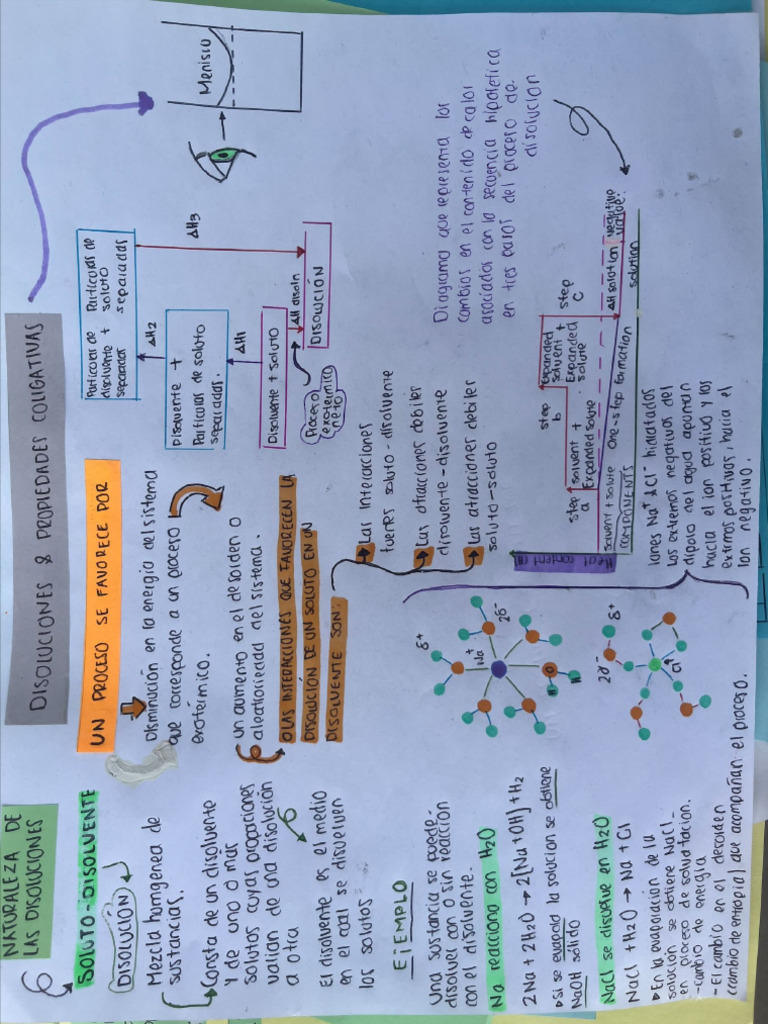 DISOLUCIONES & PROPIEDADES COLIGATIVAS
NATURALEZA DE
LAS DISOLUCIONES
SOLUTO-DISOLVENTE
DISOLUCIÓN
Mezcla homgenea de
sustancias.
Consta de un disolvente
Y de uno o mar
solutos cuyas proporciones
varian de una disolución
a otra
El disolvente es el medio
en el cual se disuelven
los solutos
EJEMPLO
Una sustancia se puede
disolver con o sin reacción
con el disolvente.
Na reacciona con H2O
2Na + 2H2O → 2[Na+OH] + H2
si se evapora la solucion se obtiene
NaOH solido
NaCl se disuelve en H2O
NaCl + H2O → Na + Cl
En la evaporación de la
solución se obtiene NaCl.
en proceso de solvatacion.
-cambio de energía
- El cambio en el desorden
(cambio de entropia) que acompañan el proceso.
UN PROCESO SE FAVORECE POR
Disminución en la energía del sistema
que corresponde a un proceso
exotérmico.
un aumento en el desorden o
aleatoriedad del sistema.
LAS INTERACCIONES QUE FAVORECEN LA
DISOLUCIÓN DE UN SOLUTO EN UN
DISOLVENTE SON:
Las interacciones
fuertes soluto-disolvente
Las atracciones debiles
disolvente-disolvente
Las atracciones debiles
soluto-soluto
Particulas de disolvente separadas + Particulas de soluto separadas
ΔH2
ΔH3
Disolvente +
Particulas de soluto
separadas.
ΔH1
Disolvente + Soluto
ΔH disoln
DISOLUCIÓN
Proceso
exotérmico
neto
Menisco
Diagrama que representa los
cambios en el contenido de calor
asociados con la secuencia hipotetica
en tres pasos del proceso de
disolucion
Heat content (H)
step
a
solvent +
Expanded solute
step
b
Expanded
solvent +
Expanded
solute
step
c
solvent + solute
COMPONENTS
One-step formation
ΔH solution (negative
value.
solution
δ+
Na+
2δ-
O
H
H
2δ-
δ+
Cl
Iones Na+ & Cl- hidratados
Los extremos negativos del
dipolo del agua apuntan
hacia el ion positivo y los
extrmos positivos, hacia el
Ion negativo.